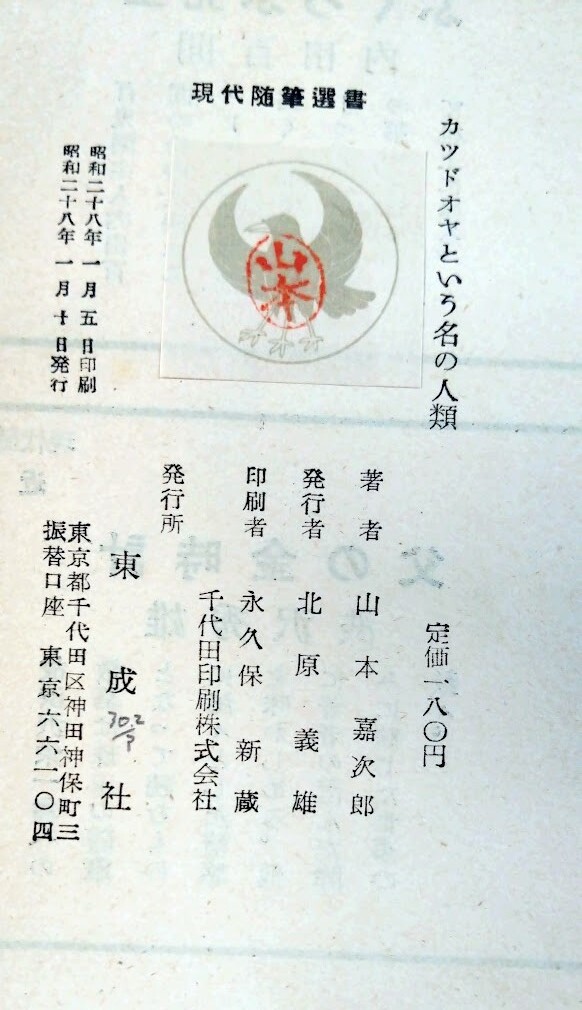 現代随筆選書
カツドオヤという名の人類
山本
昭和二十八年一月五日印刷
昭和二十八年一月十日発行
定価一八〇円
著者 山本嘉次郎
発行者 北原義雄
印刷者 永久保新蔵
千代田印刷株式会社
発行所 東成社
東京都千代田区神田神保町三
振替口座 東京六六一〇四
30.2
父の金時計